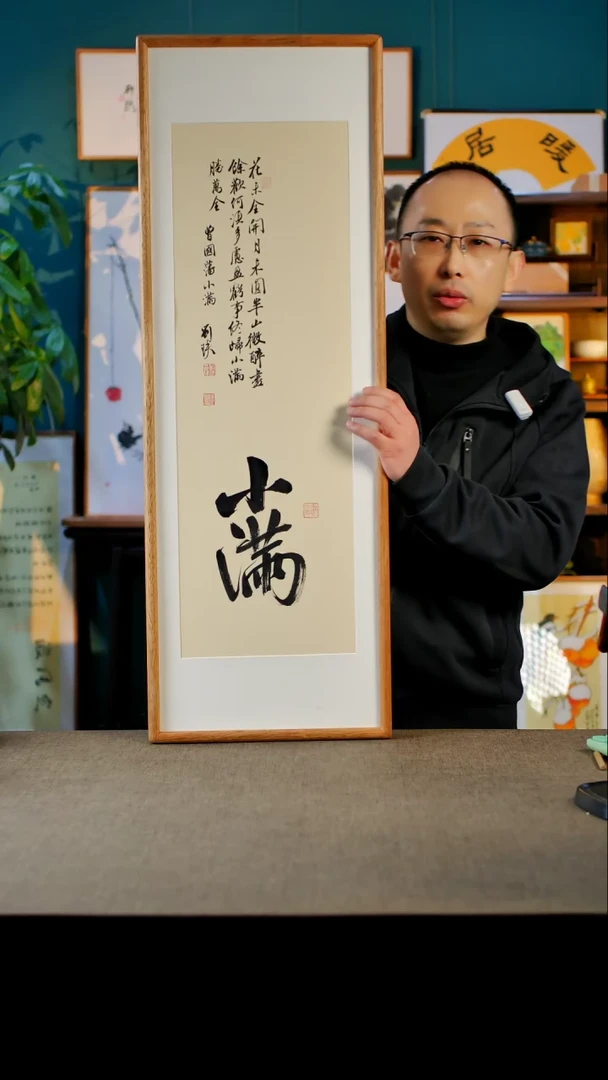 花未全開月未圓半山微醉盡
餘歡何須多慮盈虧事終歸小滿
勝萬全 曾國藩小滿 劉
小滿
暖居